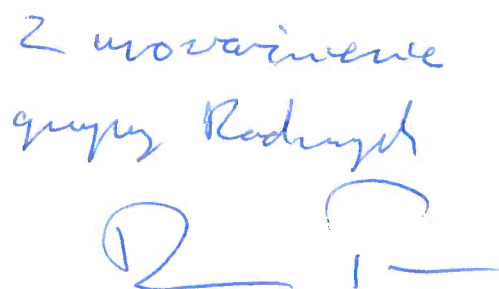 Z upoważnienie
grupy Radnych